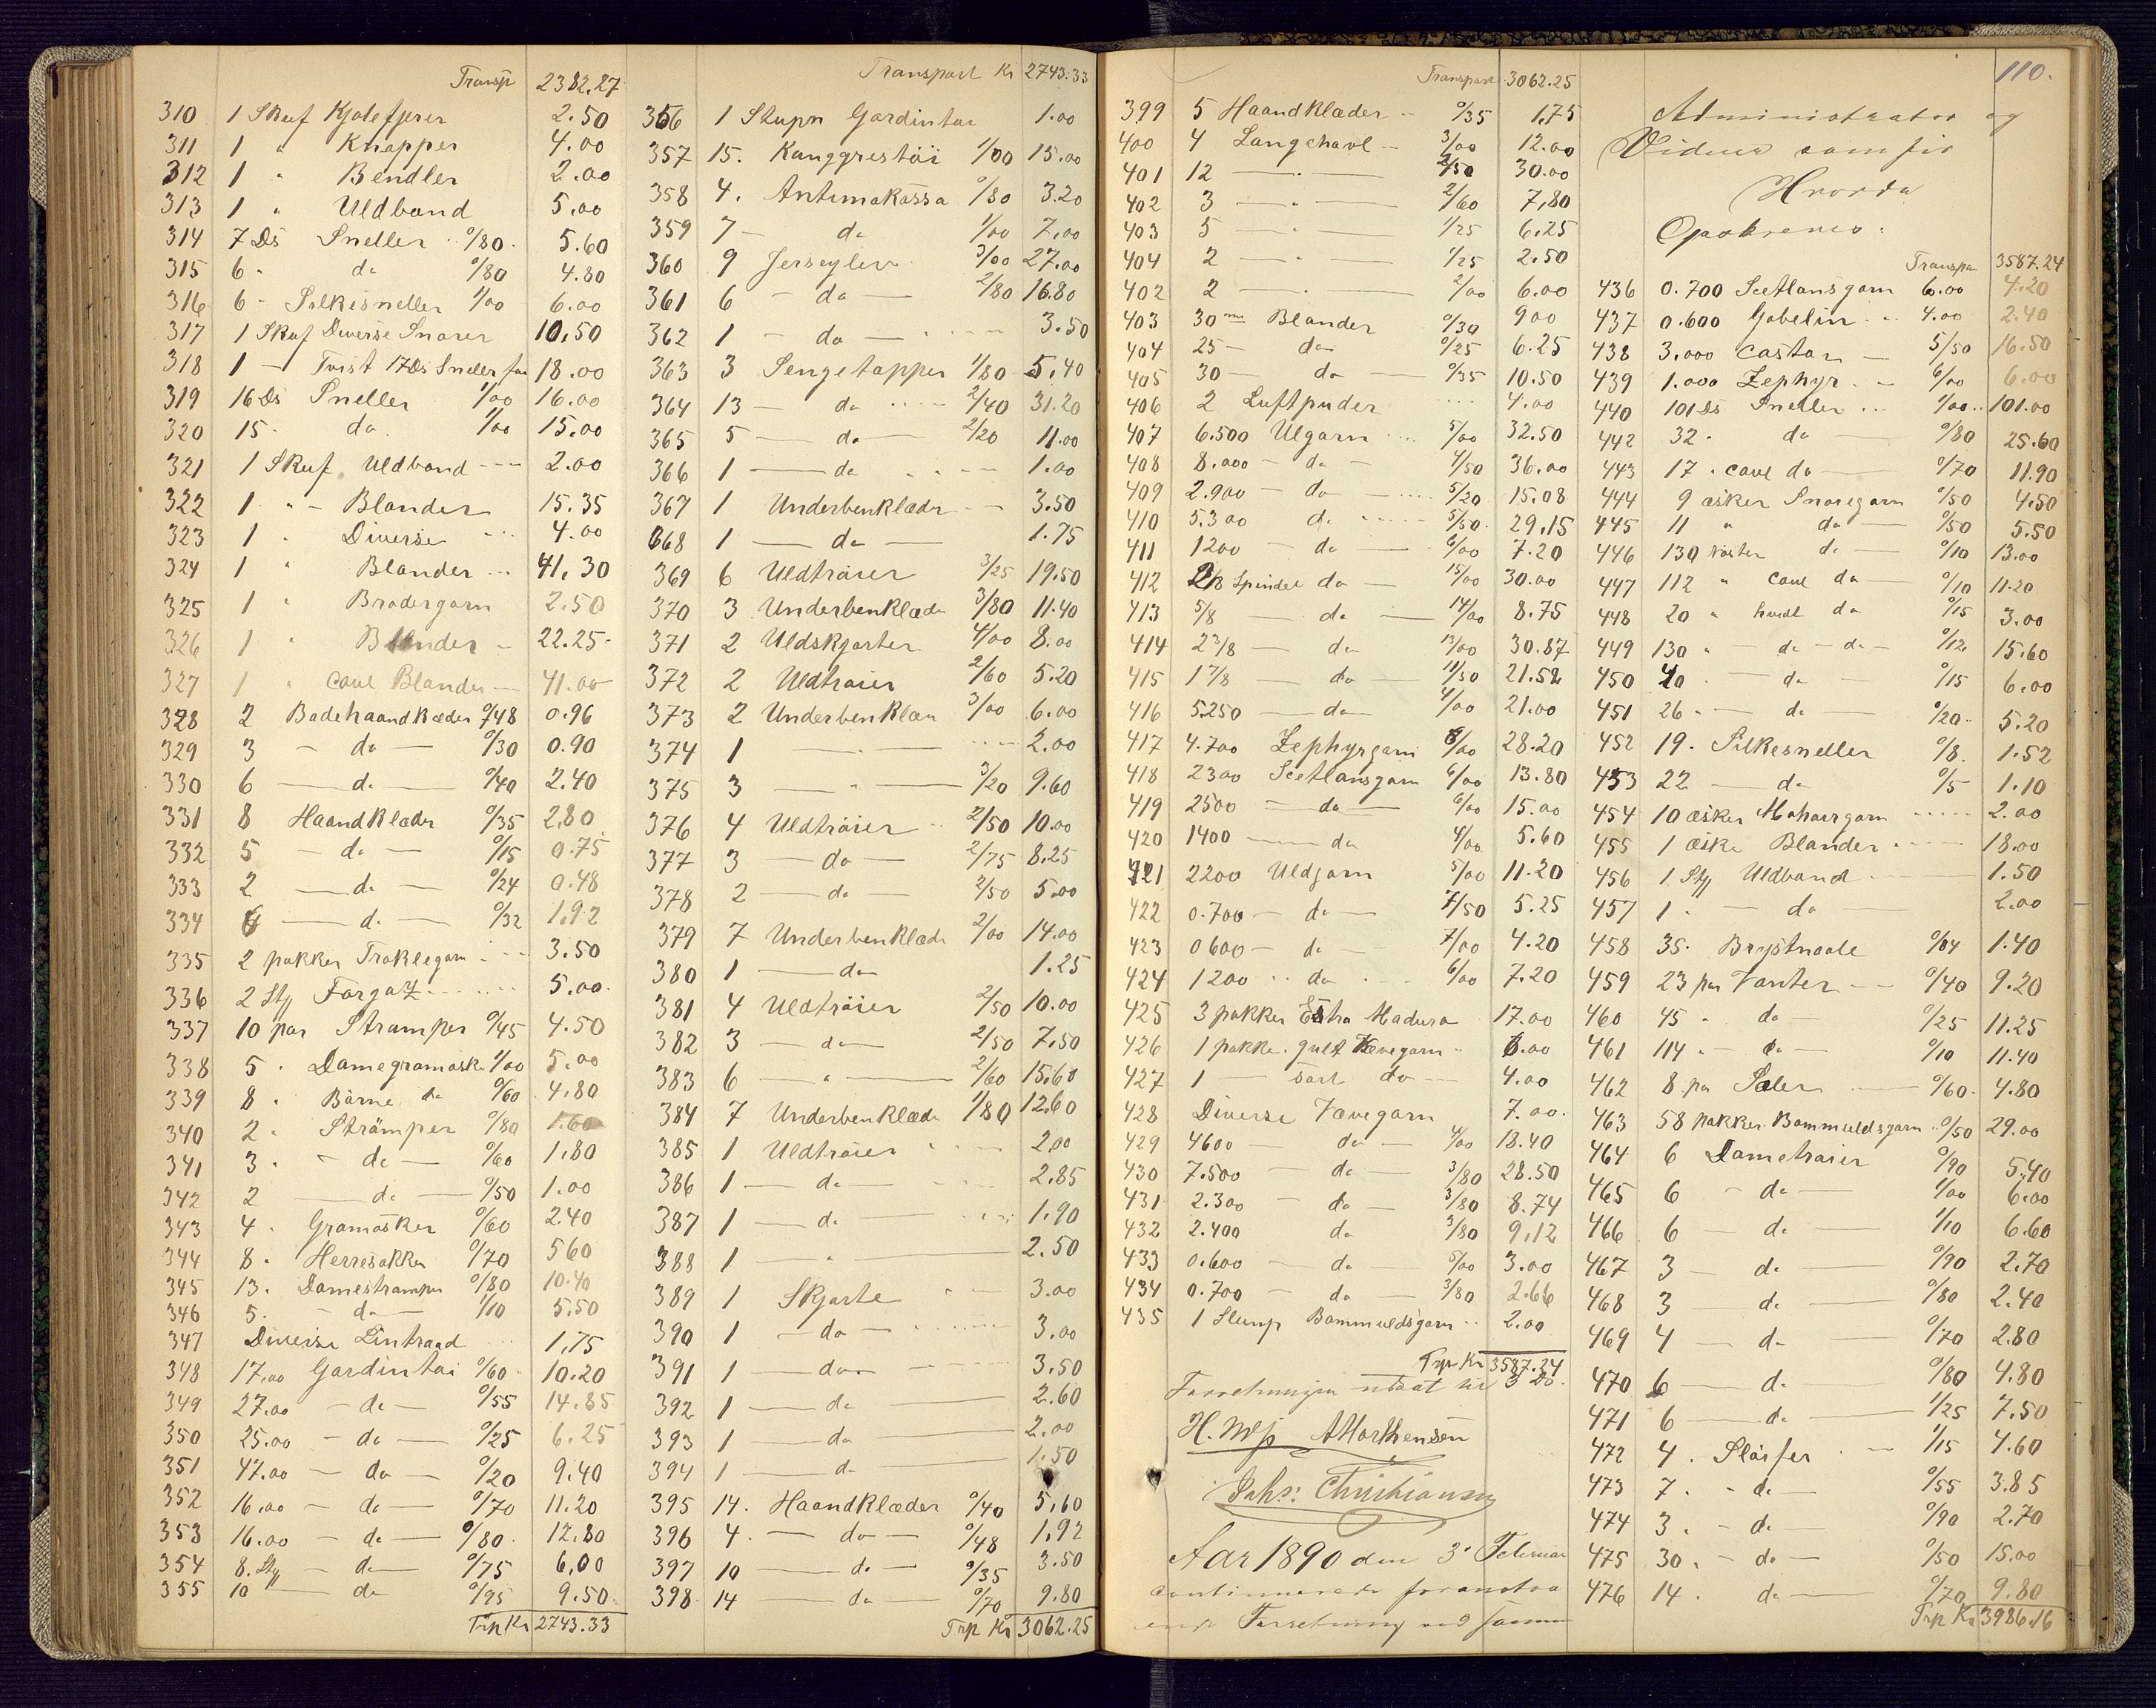 Transp 2382.27
310 1 Skuf Kjolefjærer 2.50
311 1 " Knapper 4.00
312 1 " Bendler 2.00
313 1 " Uldbond 5.00
314 7 Ds Sneller 0/80 5.60
315 6 - do 0/80 4.80
316 6 - Silkesneller 1/00 6.00
317 1 Skuf Diverse Snorer 10.50
318 1 — Tvist 17 Ds Sneller 18.00
319 16 Ds Sneller 1/00 16.00
320 15 - do 1/00 15.00
321 1 Skuf Uldbond 2.00
322 1 " - Blonder 15.35
323 1 " Diverse 4.00
324 1 " Blonder 41.30
325 1 " Brodergarn 2.50
326 1 " Blonder 22.25
327 1 " Coul Blonder 41.00
328 2 Badehaandklæder 0/48 0.96
329 3 - do - 0/30 0.90
330 6 — do — 0/40 2.40
331 8 Haandklæder 0/35 2.80
332 5 - do - 0/15 0.75
333 2 — do — 0/24 0.48
334 6 — do — 0/32 1.92
335 2 pakker Traklegarn 3.50
336 2 Stk 5.00
337 10 par Strømper 0/45 4.50
338 5 " Damegramask 1/00 5.00
339 8 " Börne do 0/60 4.80
340 2 " Strömper 0/80 1.60
341 3 " - do — 0/60 1.80
342 2 — do — 0/50 1.00
343 4 " Gramasker 0/60 2.40
344 8 " Herresokker 0/70 560
345 13 " Damestrømper 0/80 10.40
346 5 " - do — 1/10 5.50
347 Diverse Lintraad 1.75
348 17.00 Gardintøi 0/60 10.20
349 27.00 - do — 0/55 14.85
350 25.00 - do — 0/25 6.25
351 47.00 - do — 0/20 9.40
352 16.00 - do — 0/70 11.20
353 16.00 - do — 0/80 12.80
354 8. Stk - do — 0/75 6.00
355 10 — do 0/95 9.50
Trp Kr 2743.33
Transport Kr 2743.33
356 1 Stupn Gardintøi 1.00
357 15. Kanggrestöi 1/00 15.00
358 4. Antimakassa 0/80 3.20
359 7 - do 1/00 7.00
360 9 Jerseyliv 3/00 27.00
361 6 - do — 2/80 16.80
362 1 - do — 3.50
363 3 Sengetæpper 1/80 5.40
364 13 — do 2/40 31.20
365 5 — do — 2/20 11.00
366 1 — do 1.00
367 1 Underbenklæder 3.50
668 1 — do — 1.75
369 6 Uldtröier 3/25 19.50
370 3 Underbenklæder 3/80 11.40
371 2 Uldskjorter 4/00 8.00
372 2 Uldtröier 2/60 5.20
373 2 Underbenklæder 3/00 6.00
374 1 — " — 2.00
375 3 — " — 3/20 9.60
376 4 Uldtröier 2/50 10.00
377 3 — do — 2/75 8.25
378 2 — do 2/50 5.00
379 7 Underbenklæder 2/00 14.00
380 1 — do 1.25
381 4 Uldtröier 2/50 10.00
382 3 — do — 2/50 7.50
383 6 — " — 2/60 15.60
384 7 Underbenklæder 1/80 12.60
385 1 Uldtröier 2.00
386 1 — do — 2.85
387 1 — do — 1.90
388 1 — " — 2.50
389 1 Skjorte 3.00
390 1 — do — 3.00
391 1 — do 3.50
392 1 — do — 2.60
393 1 — do — 2.00
394 1 — do — 1.50
395 14. Haandklæder 0/40 5.60
396 4. — do — 0/48 1.92
397 10 — do — 0/35 3.50
398 14 — do — 0/70 9.80
Trp Kr 3062.25
Transport 3062.25
399 5 Haandklæder 0/35 1.75
400 4 Langshavl 3/00 12.00
401 12 — " — 2/50 30.00
402 3 — " — 2/60 7.80
403 5 — " — 1/25 6.25
404 2 — " — 1/25 2.50
402 2 — " — 2/00 6.00
403 30 m Blonder 0/30 900
404 25 — do 0/25 6.25
405 30 — do — 0/35 10.50
406 2 Luftpuder 4.00
407 6.500 Ulgarn 5/00 32.50
408 8.000 - do - 4/50 36.00
409 2.900 — do 5/20 15.08
410 5.300 do 5/50 29.15
411 1200 — do — 6/00 7.20
412 2/8 Spindel do — 15/00 30.00
413 5/8 — do — 14/00 8.75
414 2 3/8 — do 13/00 30.87
415 1 7/8 — do 11/50 21.52
416 5250 — do — 4/00 21.00
417 4.700 Zephyrgarn 6/00 28.20
418 2300 Scetlansgarn 6/00 13.80
419 2500 — do — 6/00 15.00
420 1400 — do 4/00 5.60
421 2200 Uldgarn 5/00 11.20
422 0.700 — do — 7/50 5.25
423 0600 - do — 7/00 4.20
424 1200 " do 6/00 7.20
425 3 pakker Estra Madura 17.00
426 1 pakke gult Vævegarn 6.00
427 1 — sort do 4.00
428 Diverse Vævegarn 7.00
429 4600 — do — 4/00 18.40
430 7.500 — do — 3/80 28.50
431 2.300 — do — 3/80 8.74
432 2.400 do 3/80 9.12
433 0.600 — do — 5/00 3.00
434 0.700 — do — 3/80 2.66
435 1 Slump Bommuldsgarn 2.00
Trp Kr 3587.24
Forretningen udsat til 3 ds.
H. Mejs AMorthensen
Johs: Christiansen
Aar 1890 den 3' Februar
continuerede foranstaa
ende Forretning ved samme
110.
Administrator og
Vidner som før
Hvorda
Opskreves:
Transp 3587.24
436 0.700 Scetlansgarn 6.00 4.20
437 0.600 Gobelin 4.00 2.40
438 3.000 Castor — 5/50 16.50
439 1.000 Zephyr 6/00 6.00
440 101 Ds Sneller 1/00 101.00
442 32 " do — 0/80 25.60
443 17 " coul do — 0/70 11.90
444 9 æsker Snoregarn 0/50 4.50
445 11 " do 0/50 5.50
446 130 nöster do — 0/10 13.00
447 112 " coul do 0/10 11.20
448 20 " hvidt do 0/15 3.00
449 130 " — do — do — 0/12 15.60
450 40 — do 0/15 6.00
451 26 " — do — 0/20 5.20
452 19. Silkesneller 0/8 1.52
453 22 — do 0/5 1.10
454 10 æsker Mohairgarn 2.00
455 1 æske Blonder 18.00
456 1 Stk Uldband 1.50
457 1. — do — 2.00
458 35. Brystnaale 0/04 1.40
459 23 par Vanter 0/40 9.20
460 45 " do — 0/25 11.25
461 114 " — do — 0/10 11.40
462 8 par Seler — 0/60 4.80
463 58 pakker Bommuldsgarn 0/50 29.00
464 6 Dametröier 0/90 5.40
465 6 - do — 1/00 6.00
466 6 — do — 1/10 6.60
467 3 — do — 0/90 2.70
468 3 do — 0/80 2.40
469 4 — do — 0/70 2.80
470 6 — do 0/80 4.80
471 6 — do — 1/25 7.50
472 4. Slöifer 1/15 4.60
473 7. - do — 0/55 3.85
474 3. - do — 0/90 2.70
475 30. - do — 0/50 15.00
476 14. do — 0/70 9.80
Trp Kr 3986.16